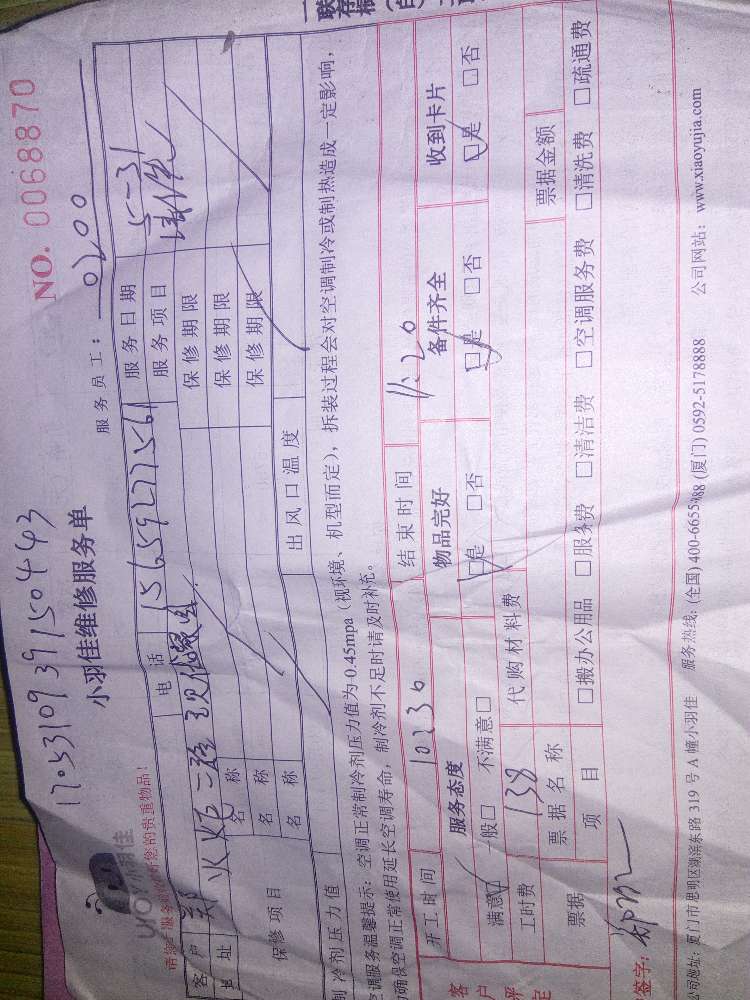 1705310939150443
NO. 0068870
小羽佳维修服务单
服务员工：0200
小羽佳
请您在服务前保管好您的贵重物品！
一联 存根 (白)
客户 郑 电话 15659277561 服务日期 5-31
地址 火炬二路 服务项目
保修项目 名称 保修期限
名称 保修期限
名称 保修期限
制冷剂压力值 出风口温度
空调服务温馨提示：空调正常制冷剂压力值为0.45mpa（视环境、机型而定），拆装过程会对空调制冷或制热造成一定影响，
为确保空调正常使用延长空调寿命，制冷剂不足时请及时补充。
开工时间 10:30 结束时间 11:20
客户评定
服务态度 物品完好 备件齐全 收到卡片
满意□ 一般□ 不满意□ □是 □否 □是 □否 □是 □否
工时费 138 代购材料费
票据 票据名称 票据金额
项目 □搬办公用品 □服务费 □清洁费 □空调服务费 □清洗费 □疏通费
签字：
公司地址：厦门市思明区湖滨东路 319 号 A 幢小羽佳 服务热线：(全国) 400-6655-988 (厦门) 0592-5178888 公司网站：www.xiaoyujia.com